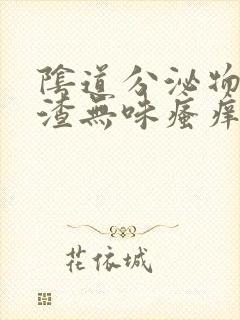 陰道分泌物
渣無味瘙癢
花依城